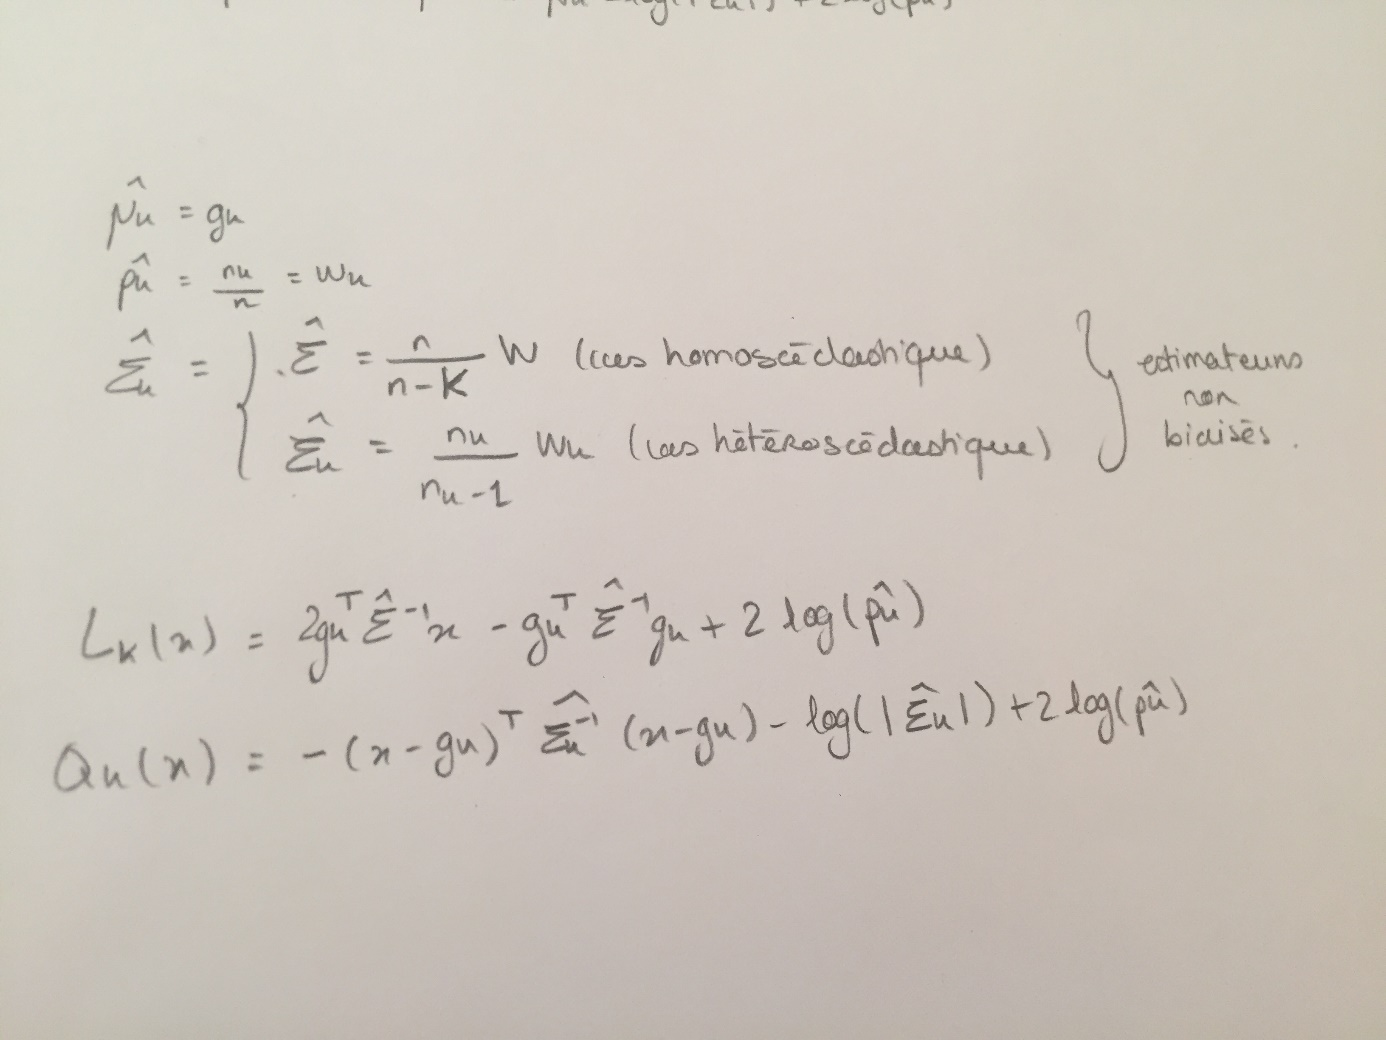 μ̂k = gk
p̂k = nk/n = wk
Σ̂k = { . Σ̂ = n/(n-K) W (cas homoscédastique)
Σ̂k = nk/(nk-1) Wk (cas hétéroscédastique) } estimateurs non biaisés.
LK(x) = 2gkᵀ Σ̂⁻¹x - gkᵀ Σ̂⁻¹gk + 2 log(p̂k)
Qk(x) = -(x-gk)ᵀ Σ̂k⁻¹ (x-gk) - log(|Σ̂k|) + 2 log(p̂k)